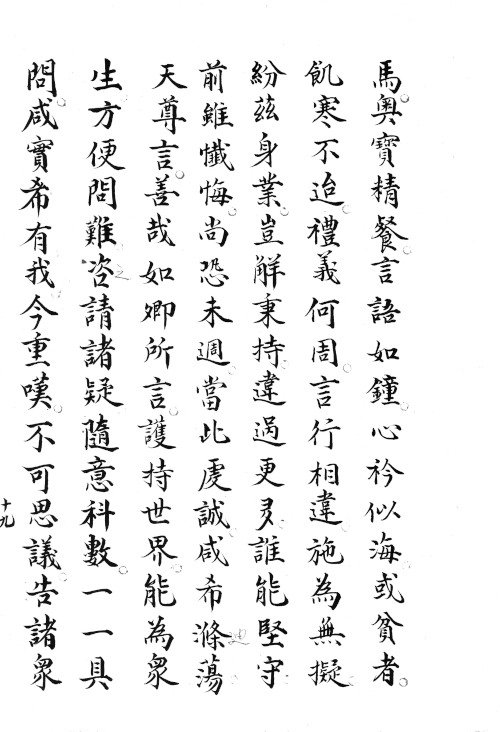 馬奥寶精餐言語如鐘心衿似海或貧者
飢寒不迨禮義何周言行相違施為無擬
紛茲身業豈解秉持違過更多誰能堅守
前雖懺悔尚恐未週當此虔誠咸希滌蕩
天尊言善哉如卿所言護持世界能為衆
生方便問難咨請諸疑隨意科數一一具
問咸實希有我今重嘆不可思議告諸衆
十九